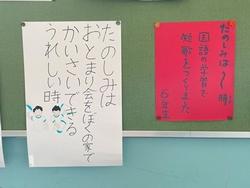 たのしみは〜時
国語の学習で
短歌をつくりました
6年生
たのしみは
おとまり会をぼくの家で
かいさいできる
うれしい時